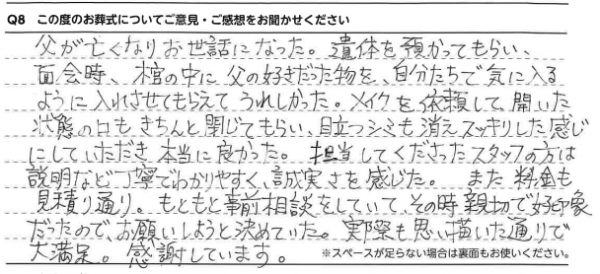 Q8 この度のお葬式についてご意見・ご感想をお聞かせください
父が亡くなりお世話になった。遺体を預かってもらい、
面会時、棺の中に父の好きだった物を、自分たちで気に入る
ように入れさせてもらえてうれしかった。メイクを依頼して開いた
状態の口もきちんと閉じてもらい、目立つシミも消えスッキリした感じ
にしていただき本当に良かった。担当してくださったスタッフの方は
説明など丁寧でわかりやすく、誠実さを感じた。また料金も
見積り通り。もともと事前相談をしていて、その時親切で好印象
だったので、お願いしようと決めていた。実際も思い描いた通りで
大満足。感謝しています。
※スペースが足らない場合は裏面もお使いください。